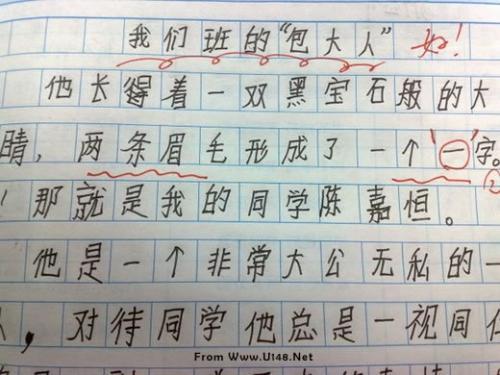 我们班的“包大人” 好!
他长得着一双黑宝石般的大
睛，两条眉毛形成了一个‘一’字。
! 那就是我的同学陈嘉恒。
②
他是一个非常大公无私的一
人，对待同学他总是一视同仁
From Www.U148.Net